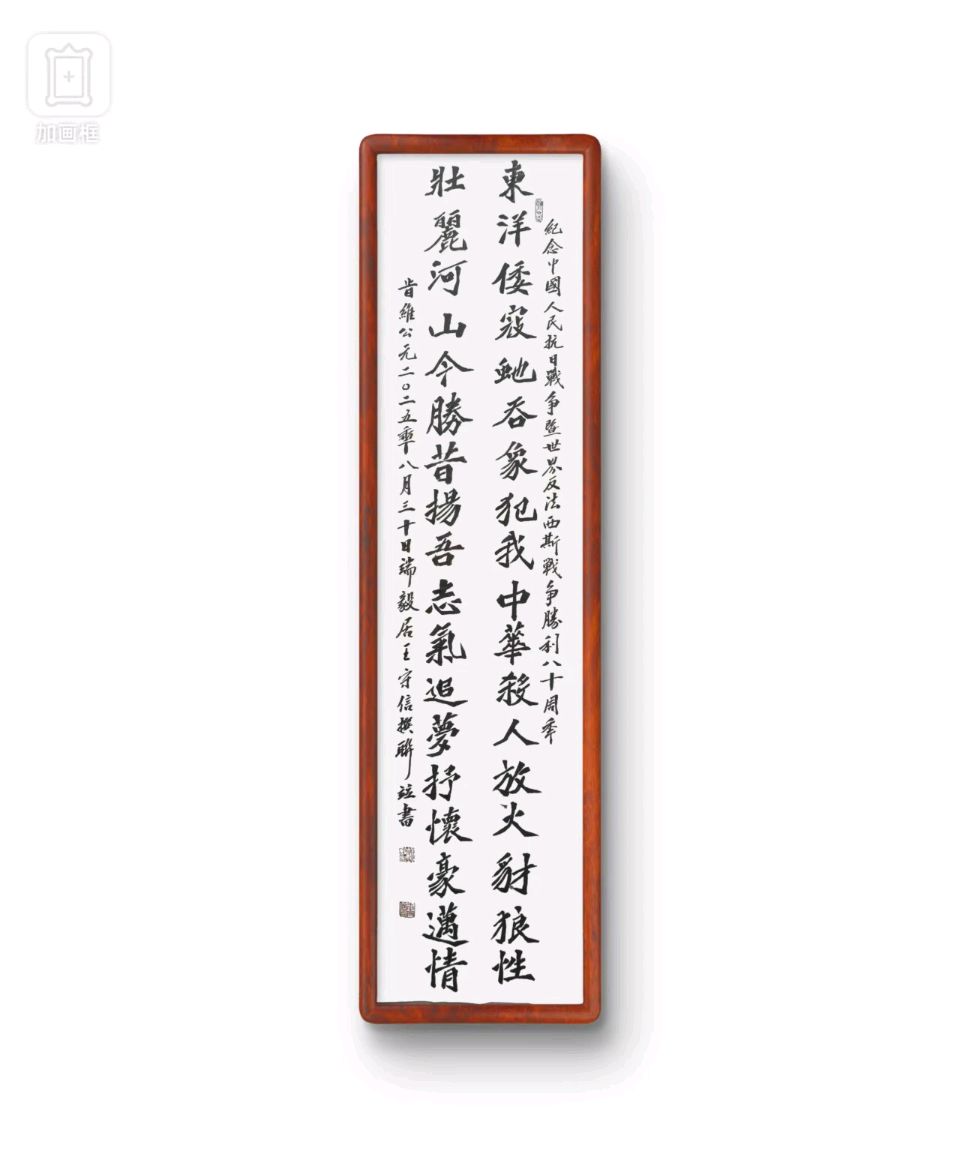 加画框
紀念中國人民抗日戰争暨世界反法西斯戰争勝利八十周年
東洋倭寇虵吞象犯我中華殺人放火豺狼性
壯麗河山今勝昔揚吾志氣追夢抒懷豪邁情
旹維公元二〇二五年八月三十日端毅居王守信撰聯竝書